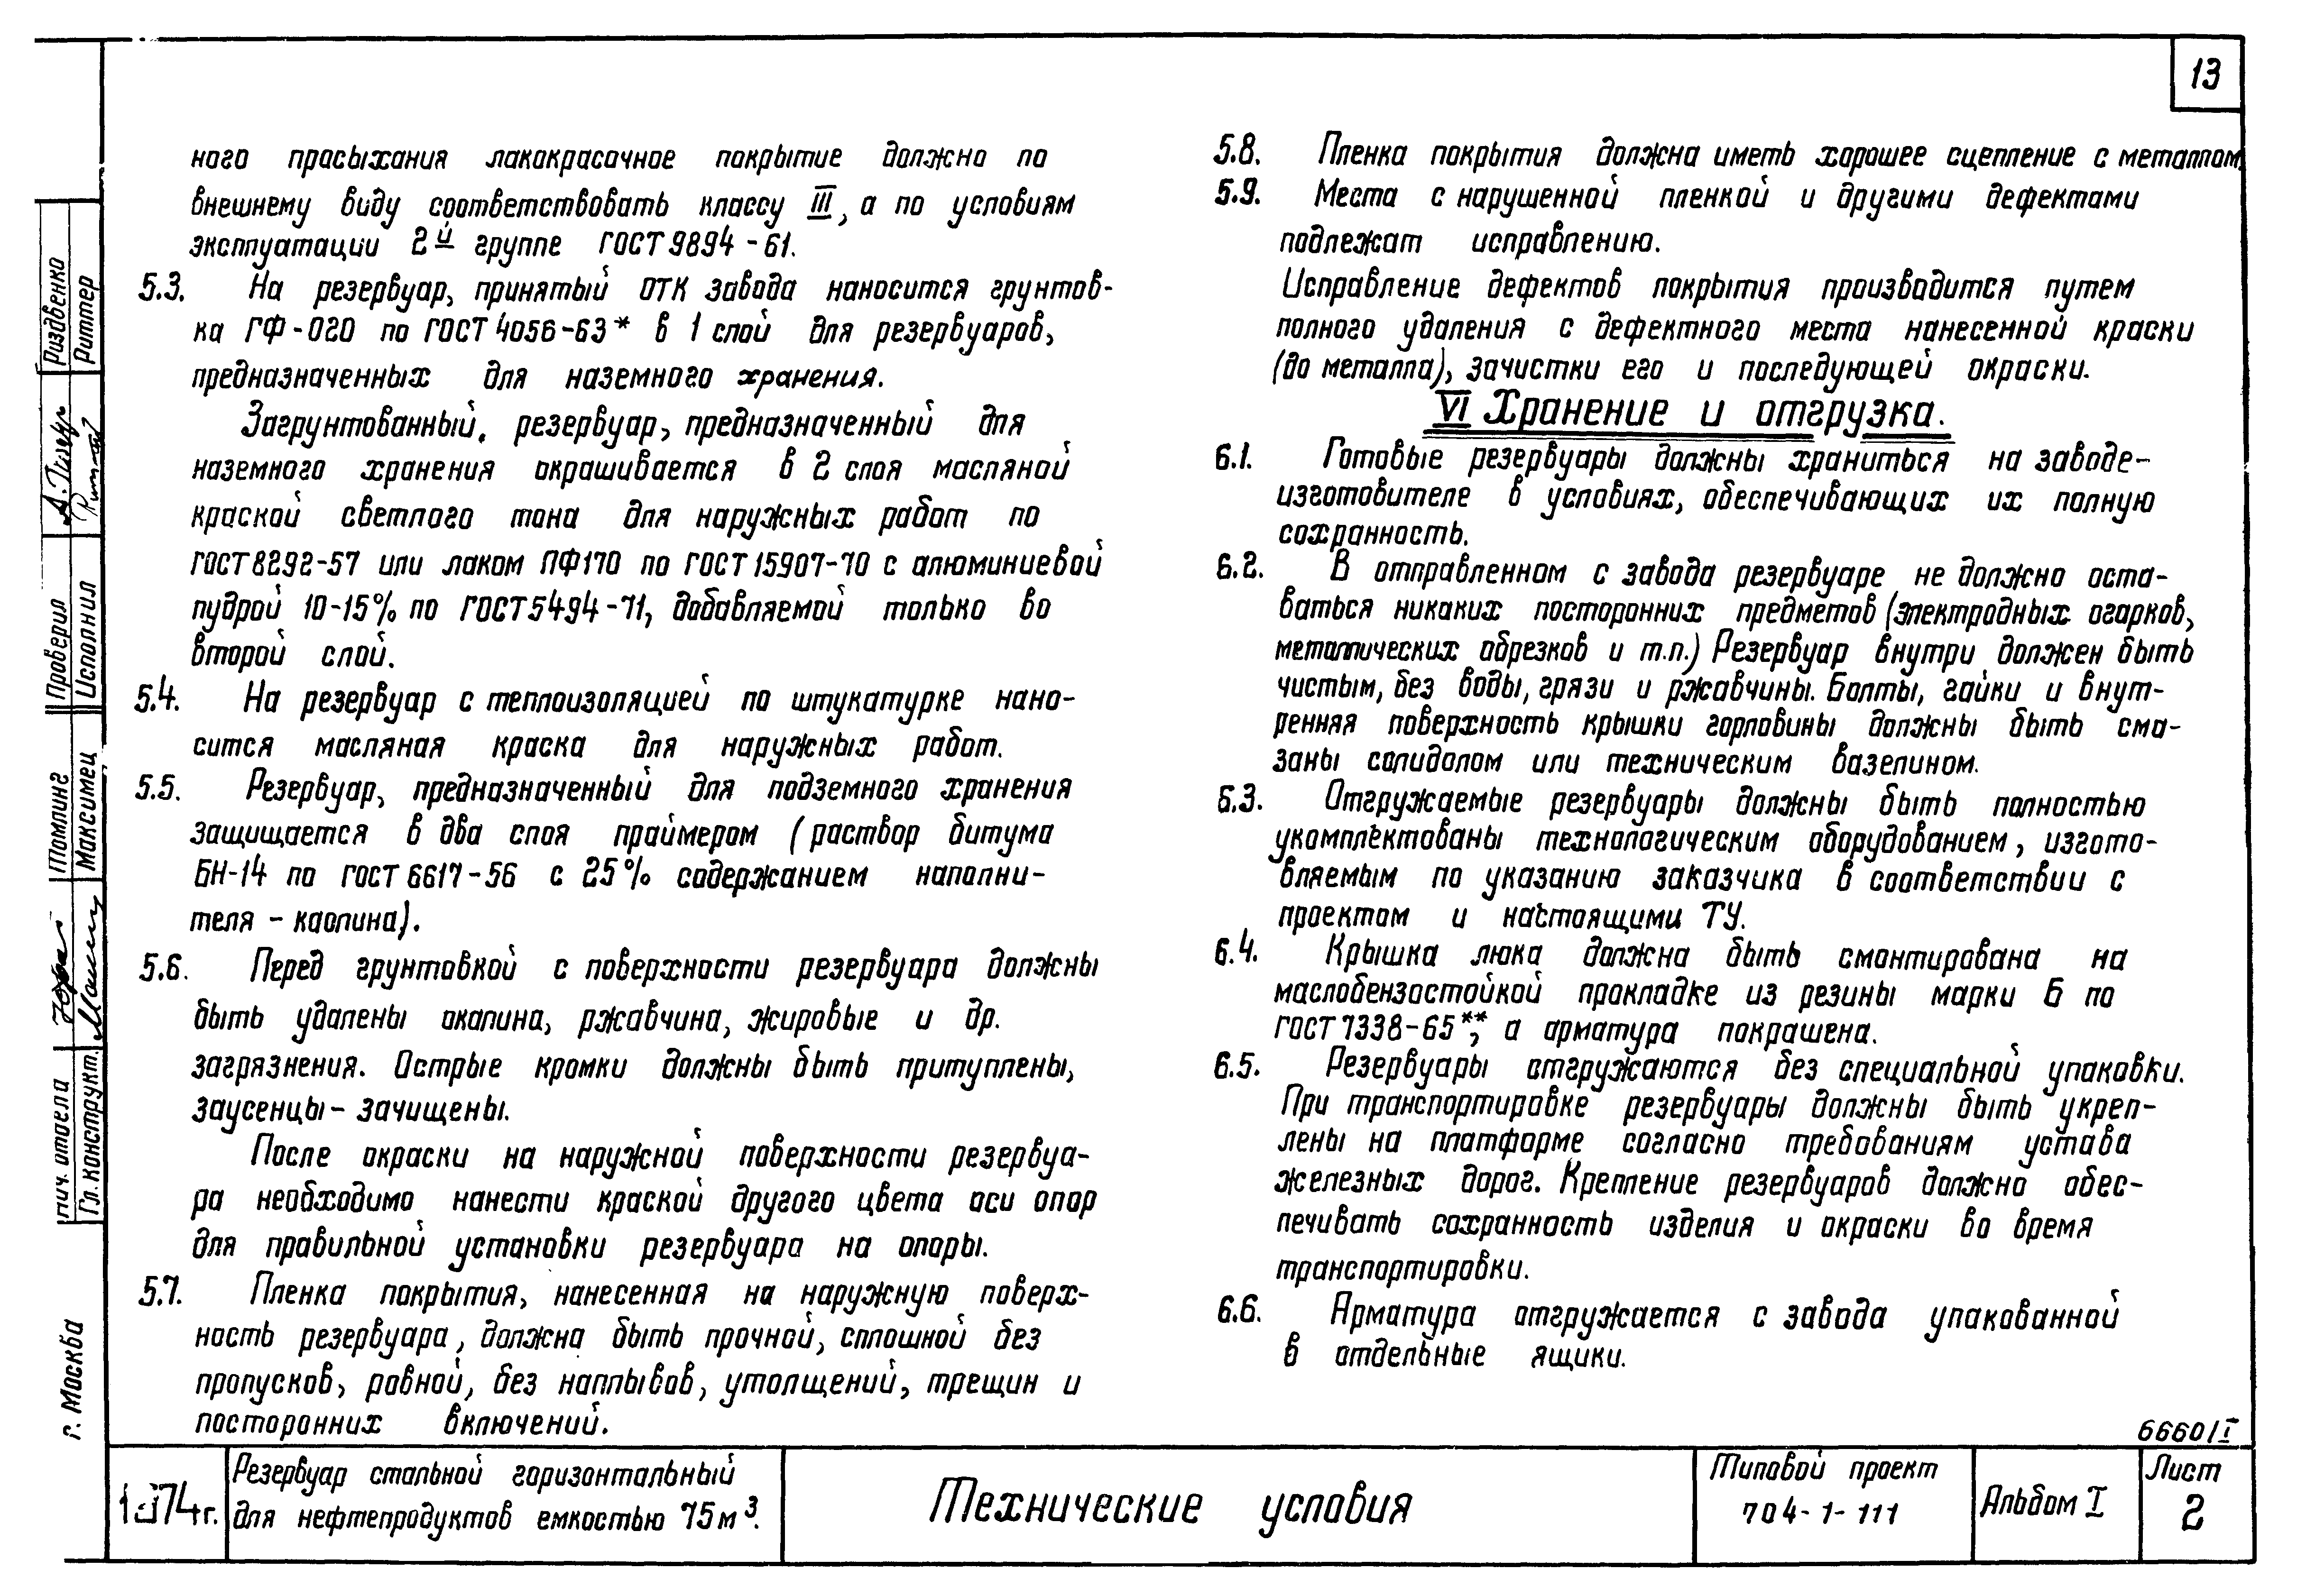 13
ного просыхания лакокрасочное покрытие должно по
внешнему виду соответствовать классу III, а по условиям
эксплуатации 2й группе ГОСТ 9894-61.
5.3. На резервуар, принятый ОТК завода наносится грунтов-
ка ГФ-020 по ГОСТ 4056-63* в 1 слой для резервуаров,
предназначенных для наземного хранения.
Загрунтованный, резервуар, предназначенный для
наземного хранения окрашивается в 2 слоя масляной
краской светлого тона для наружных работ по
ГОСТ 8292-57 или лаком ПФ170 по ГОСТ 15907-70 с алюминиевой
пудрой 10-15% по ГОСТ 5494-71, добавляемой только во
второй слой.
5.4. На резервуар с теплоизоляцией по штукатурке нано-
сится масляная краска для наружных работ.
5.5. Резервуар, предназначенный для подземного хранения
защищается в два слоя праймером (раствор битума
БН-14 по ГОСТ 6617-56 с 25% содержанием наполни-
теля - каолина).
5.6. Перед грунтовкой с поверхности резервуара должны
быть удалены окалина, ржавчина, жировые и др.
загрязнения. Острые кромки должны быть притуплены,
заусенцы - зачищены.
После окраски на наружной поверхности резервуа-
ра необходимо нанести краской другого цвета оси опор
для правильной установки резервуара на опоры.
5.7. Пленка покрытия, нанесенная на наружную поверх-
ность резервуара, должна быть прочной, сплошной без
пропусков, ровной, без наплывов, утолщений, трещин и
посторонних включений.
5.8. Пленка покрытия должна иметь хорошее сцепление с металлом
5.9. Места с нарушенной пленкой и другими дефектами
подлежат исправлению.
Исправление дефектов покрытия производится путем
полного удаления с дефектного места нанесенной краски
(до металла), зачистки его и последующей окраски.
VI Хранение и отгрузка.
6.1. Готовые резервуары должны храниться на заводе-
изготовителе в условиях, обеспечивающих их полную
сохранность.
6.2. В отправленном с завода резервуаре не должно оста-
ваться никаких посторонних предметов (электродных огарков,
металлических обрезков и т.п.) Резервуар внутри должен быть
чистым, без воды, грязи и ржавчины. Болты, гайки и внут-
ренняя поверхность крышки горловины должны быть сма-
заны солидолом или техническим вазелином.
6.3. Отгружаемые резервуары должны быть полностью
укомплектованы технологическим оборудованием, изгото-
вляемым по указанию заказчика в соответствии с
проектом и настоящими ТУ.
6.4. Крышка люка должна быть смонтирована на
маслобензостойкой прокладке из резины марки Б по
ГОСТ 7338-65**, а арматура покрашена.
6.5. Резервуары отгружаются без специальной упаковки.
При транспортировке резервуары должны быть укреп-
лены на платформе согласно требованиям устава
железных дорог. Крепление резервуаров должно обес-
печивать сохранность изделия и окраски во время
транспортировки.
6.6. Арматура отгружается с завода упакованной
в отдельные ящики.
6660/I
1974г.
Резервуар стальной горизонтальный
для нефтепродуктов емкостью 75м³.
Технические условия
Типовой проект
704-1-111
Альбом I
Лист
2
Риздвенко
Риттер
Проверил
Исполнил
Томлинг
Максимец
отдела
Гл. конструкт.
г. Москва